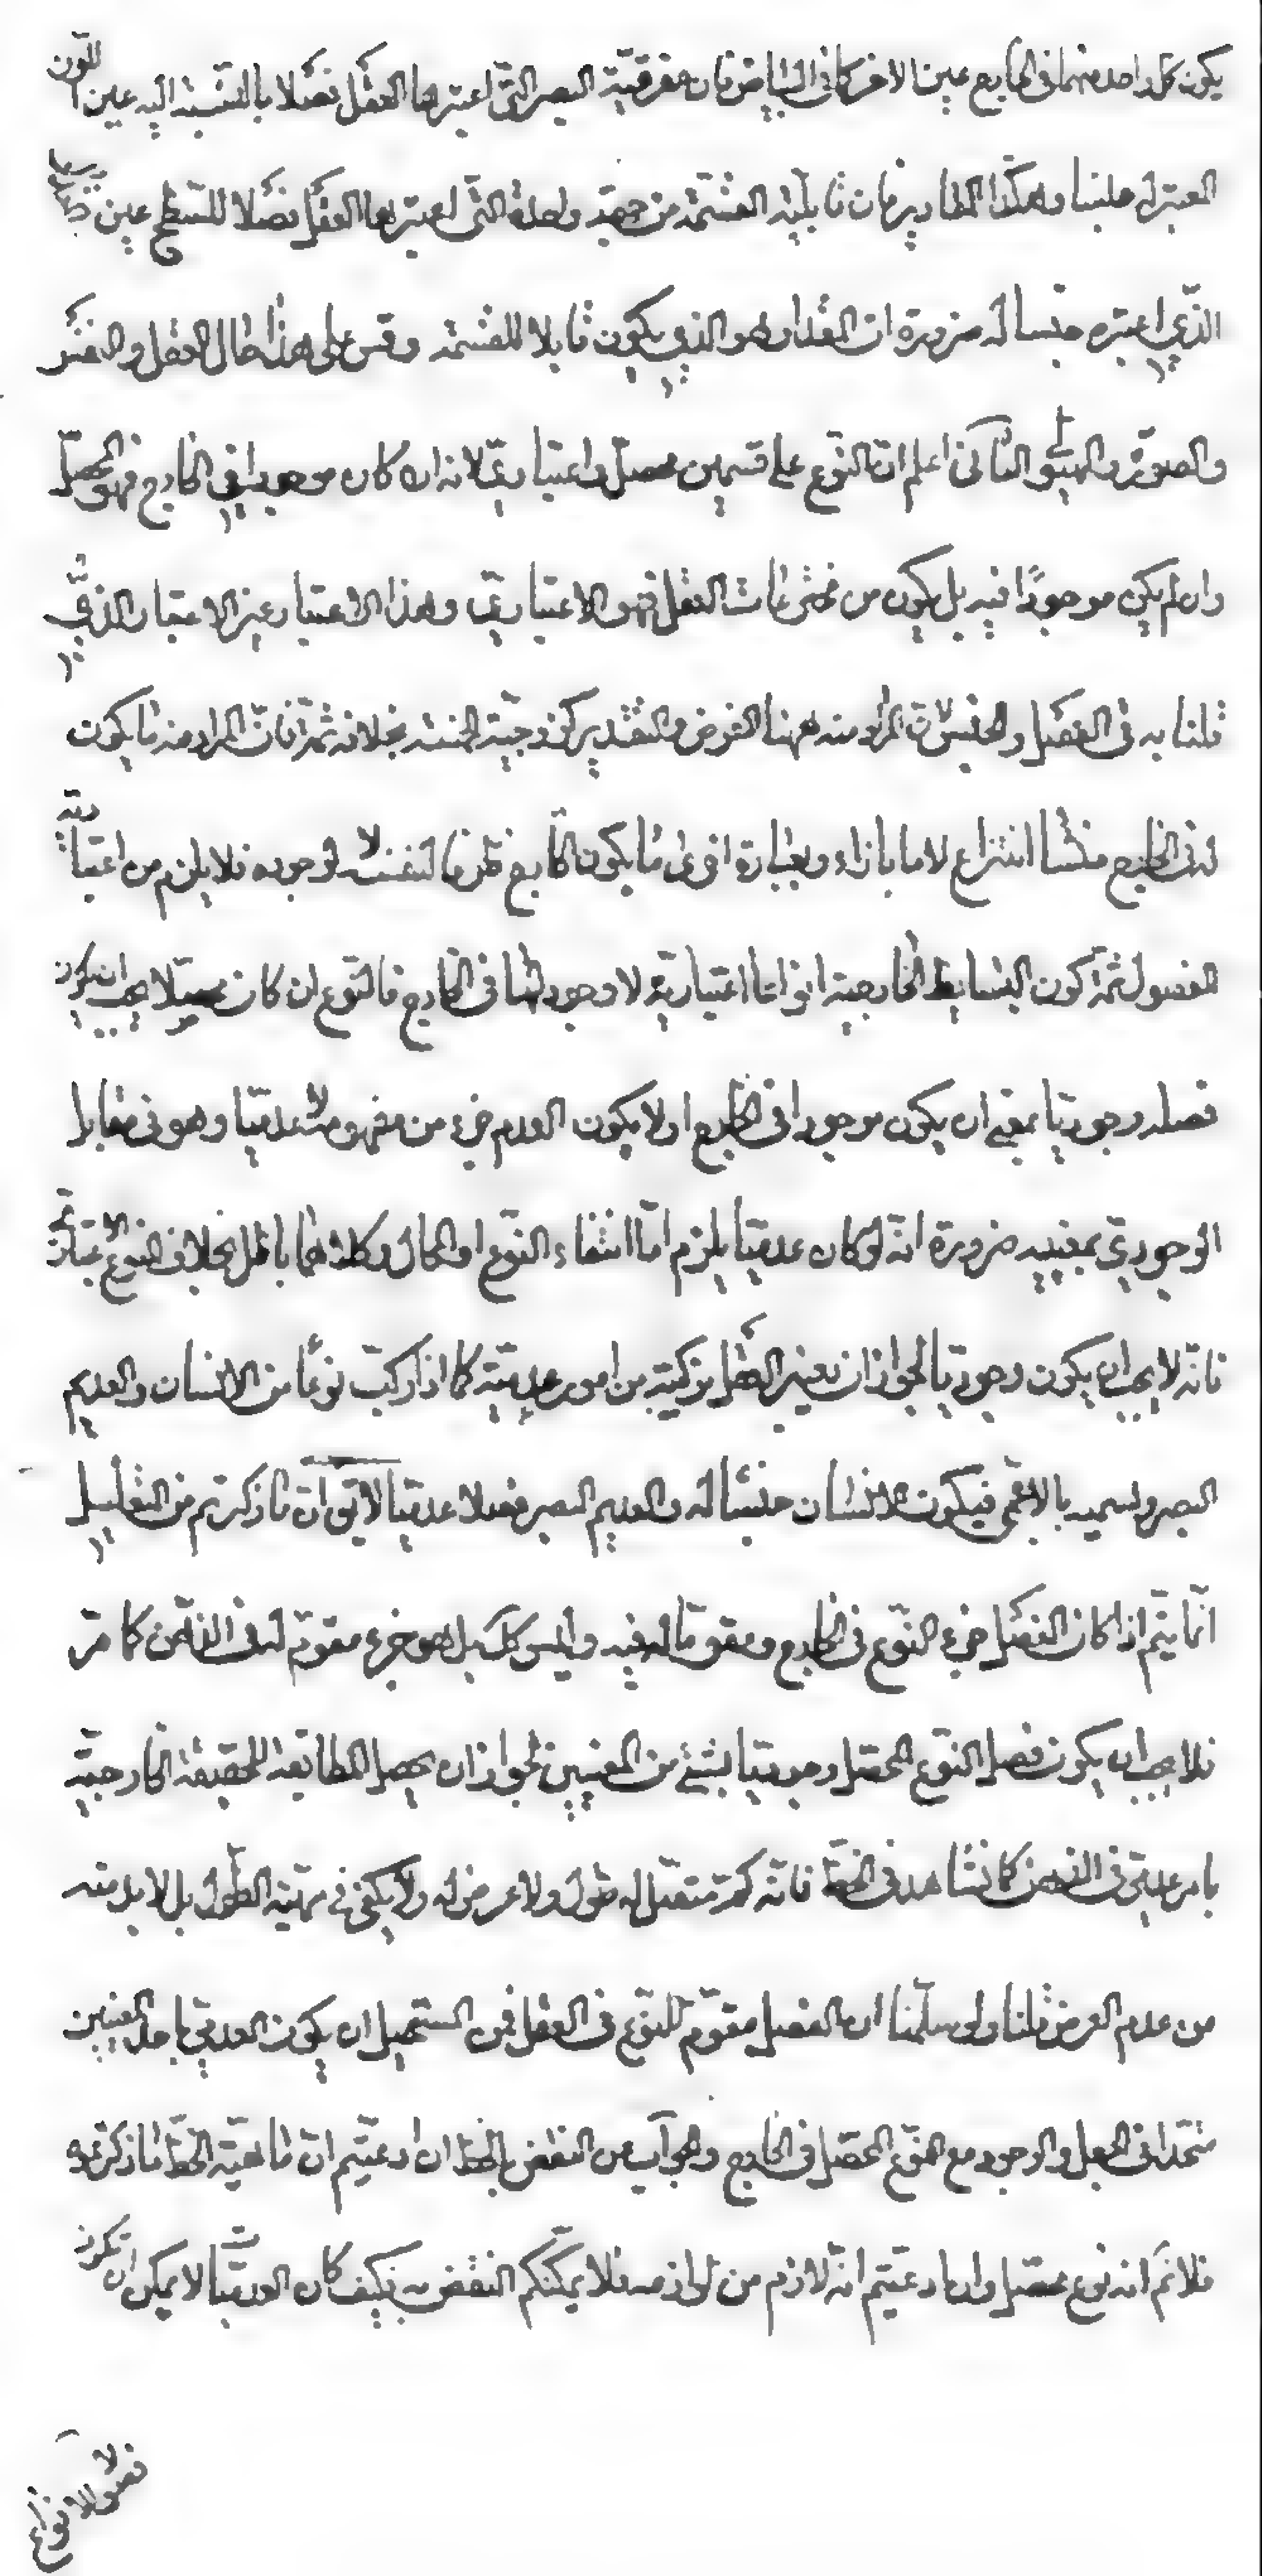 يكون كل واحد منهما في الخارج عين الاخر كما في البياض فان مفرقية البصر التي اعتبرها العقل فصلا بالنسبة اليه عين اللون
المعتبر له جنسا وهكذا المقادير فان قابلية القسمة من جهة واحدة التي اعتبرها العقل فصلا للسطح عين
الذي اعتبره جنسا له ضرورة ان المقدار هو الذي يكون قابلا للقسمة وقس على هذا حال العقل والنفس
والصورة والهيولى الثاني اعلم ان النوع على قسمين محصل واعتباري لانه ان كان موجودا في الخارج فهو المحصل
وان لم يكن موجودًا فيه بل يكون من مخترعات العقل فهو الاعتباري وهذا الاعتبار غير الاعتبار الذي
قلنا به في الفصل والجنس لان المراد منه ههنا الفرض والتقدير كزوجية الخمسة بخلافه ثمة فان المراد منه ما يكون
له في الخارج منشا انتزاع لا ما بازاء وبعبارة اخرى ما يكون الخارج ظرفا لنفسه لا لوجوده فلا يلزم من اعتبارية
الفصول ثمة كون البسايط الخارجية انواعا اعتبارية لا وجود لها في الخارج فالنوع ان كان محصلا يجب ان يكون
فصله وجوديا بمعنى ان يكون موجودا في الخارج او لا يكون العدم جزء من مفهومه لا عدميا وهو في مقابل
الوجودي بمعنييه ضرورة انه لو كان عدميا يلزم اما انتفاء النوع او المحال وكلاهما باطل بخلاف النوع الاعتباري
فانه لا يجب ان يكون وجوديا لجواز ان يعتبر العقل تركيبه من امور عدمية كما اذا ركب نوعًا من الانسان والعديم
البصر ويسميه بالاعمى فيكون الانسان جنسا له والعديم البصر فصلا عدميا لا يق ان ما ذكرتم من التعليل
انما يتم اذا كان الفصل جزء النوع في الخارج ومقوما له فيه وليس كك بل هو جزء مقوم له في الذهن كما مر
فلا يجب ان يكون فصل النوع المحصل وجوديا بشئ من المعنيين لجواز ان يحصل المطابقة للحقيقة الخارجية
بامر عدمي في الذهن كما نشاهد في الخط فانه كم متصل له طول ولا عرض له ولا يكفي في مهيته الطول بل لا بد منه
من عدم العرض قلنا ولو سلمنا ان الفصل مقوم للنوع في العقل فمن المستحيل ان يكون العدمي باحد المعنيين
متحدا في الجعل والوجود مع النوع المحصل في الخارج والجواب عن النقض بالخط ان ادعيتم ان ماهية الخط ما ذكرتموه
فلا نم انه نوع محصل وان ادعيتم انه لازم من لوازمه فلا يمكنكم النقض به فكيف كان العدميات لا يمكن ان تكون
فصولا لانواع